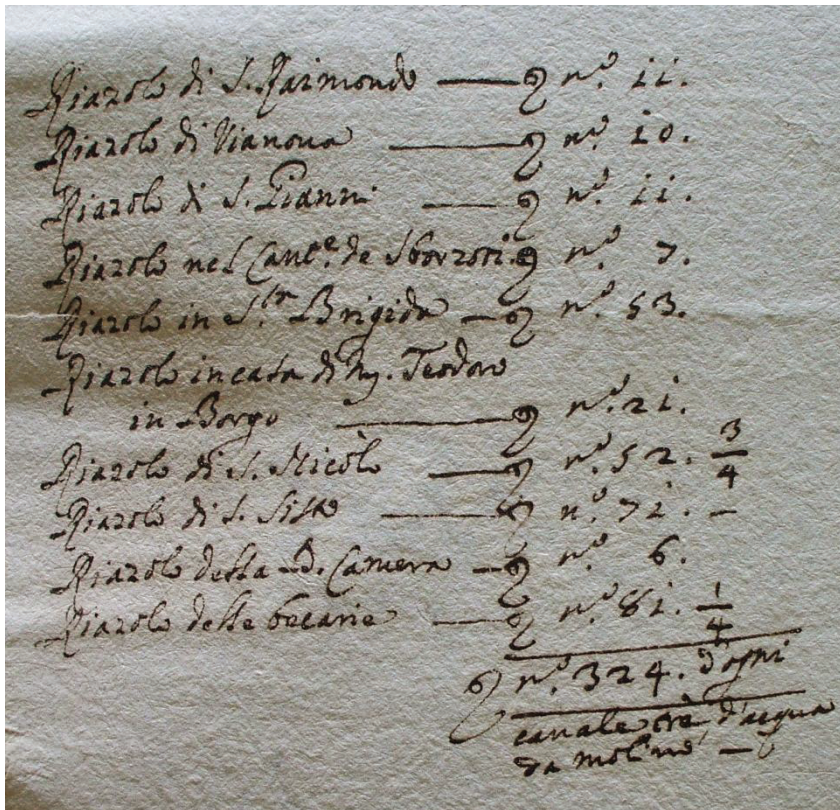 Riazolo di S. Raimondo — n.º 11.
Riazolo di Vianova — n.º 10.
Riazolo di S. Gianni — n.º 11.
Riazolo nel Cant.e de n.º 7.
Riazolo in S.ta Brigida — n.º 53.
Riazolo in casa di Teodoro
in Borgo — n.º 21.
Riazolo di S. Nicolò — n.º 52. 3/4
Riazolo di S. Sisto — n.º 71. –
Riazolo della D. Camera — n.º 6.
Riazolo delle becarie — n.º 81. 1/4
n.º 324. d'ogni
canale d'acqua
da molino –